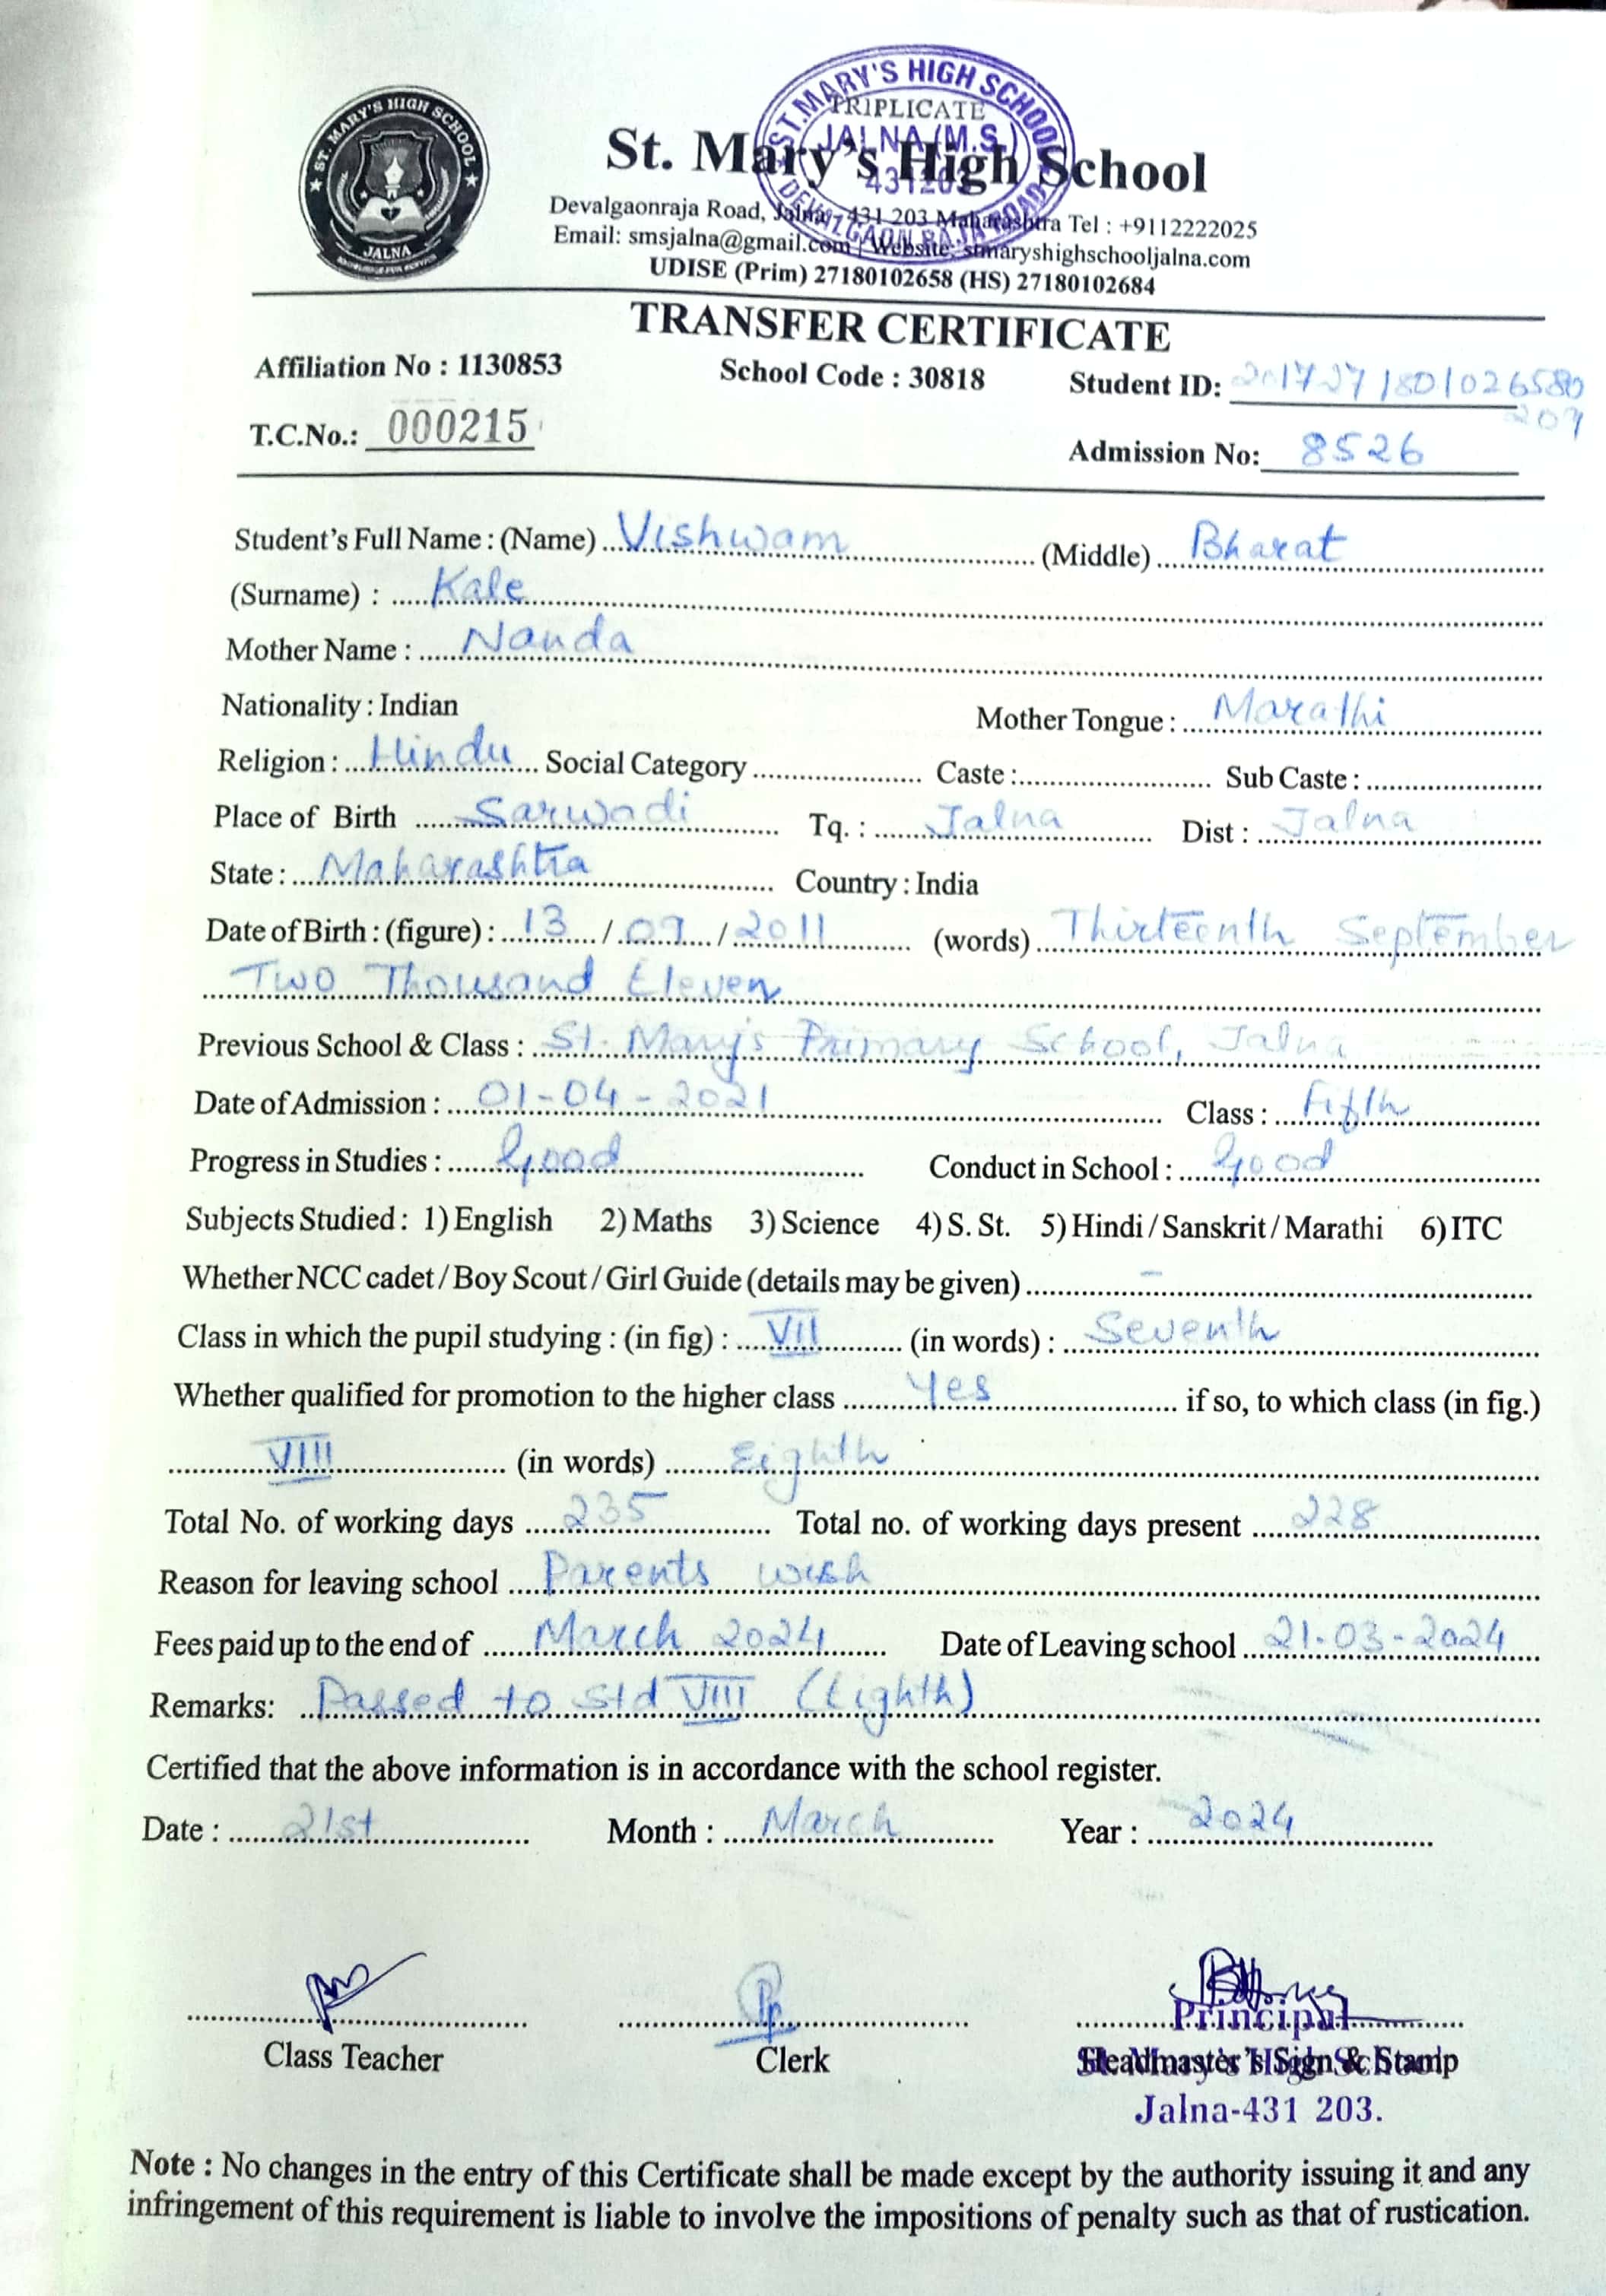 ★ ST. MARY'S HIGH SCHOOL ★
JALNA
ST. MARY'S HIGH SCHOOL
TRIPLICATE
JALNA (M.S.)
DEVALGAON RAJA ROAD
St. Mary's High School
Devalgaonraja Road, Jalna - 431 203 Maharashtra Tel : +9112222025
Email: smsjalna@gmail.com | Website. stmaryshighschooljalna.com
UDISE (Prim) 27180102658 (HS) 27180102684
TRANSFER CERTIFICATE
Affiliation No : 1130853 School Code : 30818 Student ID: 2017271801026580
209
T.C.No.: 000215 Admission No: 8526
Student's Full Name : (Name) Vishwam (Middle) Bharat
(Surname) : Kale
Mother Name : Nanda
Nationality : Indian Mother Tongue : Marathi
Religion : Hindu Social Category Caste : Sub Caste :
Place of Birth Sarwadi Tq. : Jalna Dist : Jalna
State : Maharashtra Country : India
Date of Birth : (figure) : 13 / 09 / 2011 (words) Thirteenth September
Two Thousand Eleven
Previous School & Class : St. Mary's Primary School, Jalna
Date of Admission : 01-04-2021 Class : Fifth
Progress in Studies : Good Conduct in School : Good
Subjects Studied : 1) English 2) Maths 3) Science 4) S. St. 5) Hindi / Sanskrit / Marathi 6) ITC
Whether NCC cadet / Boy Scout / Girl Guide (details may be given) -
Class in which the pupil studying : (in fig) : VII (in words) : Seventh
Whether qualified for promotion to the higher class Yes if so, to which class (in fig.)
VIII (in words) Eighth
Total No. of working days 235 Total no. of working days present 228
Reason for leaving school Parents wish
Fees paid up to the end of March 2024 Date of Leaving school 21-03-2024
Remarks: Passed to Std VIII (Eighth)
Certified that the above information is in accordance with the school register.
Date : 21st Month : March Year : 2024
Principal
Class Teacher Clerk Headmaster's Sign & Stamp
Jalna-431 203.
Note : No changes in the entry of this Certificate shall be made except by the authority issuing it and any
infringement of this requirement is liable to involve the impositions of penalty such as that of rustication.